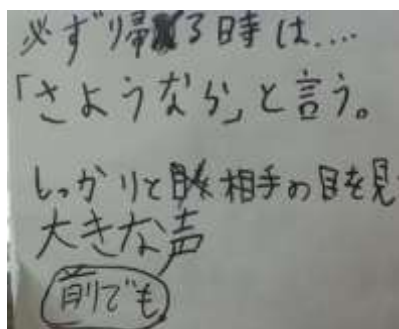 必ず帰る時は....
「さようなら」と言う。
しっかりと相手の目を見
大きな声
前でも